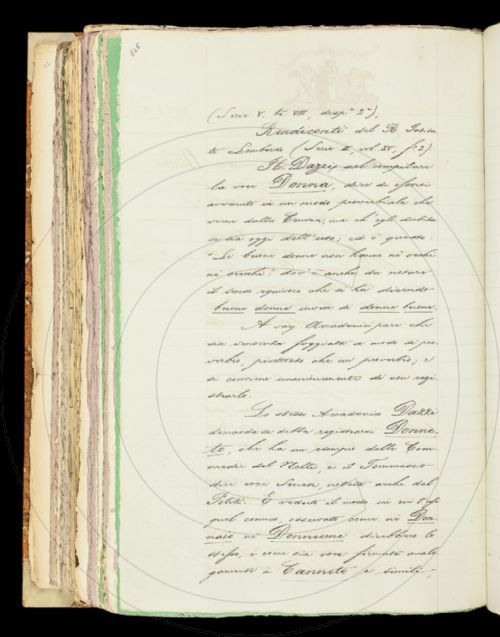 (Serie V. to. VIII, disp.a 2.a).
Rendiconti del R. Istitu-
to Lombardo (Serie II. vol. XV, f.o 2).
Il Dazzi nel compilare
la voce Donna, dice di essersi
avvenuto in un modo proverbiale che
viene dalla Crusca, ma ch'egli dubita
se sia oggi dell'uso; ed è questo:
"Le buone donne non hanno nè occhi
nè orecchi": dov'è anche da notare
il senso equivoco che si ha dicendo
buone donne invece di donne buone.
A varj Accademici pare che
sia sentenza foggiata a modo di pro-
verbio, piuttosto che un proverbio; e
si conviene unanimemente di non regi-
strarlo.
Lo stesso Accademico Dazzi
domanda se debba registrarsi Donne-
to, che ha un esempio delle Com-
medie del Nelli, e il Tommaseo
dice voce Senese, notata anche dal
Politi. E veduto il modo in cui l'usa
quel comico, osservato come nè Don-
naio nè Donnesco direbbero lo
stesso, e come sia voce formata analo-
gamente a Canneto e simili;